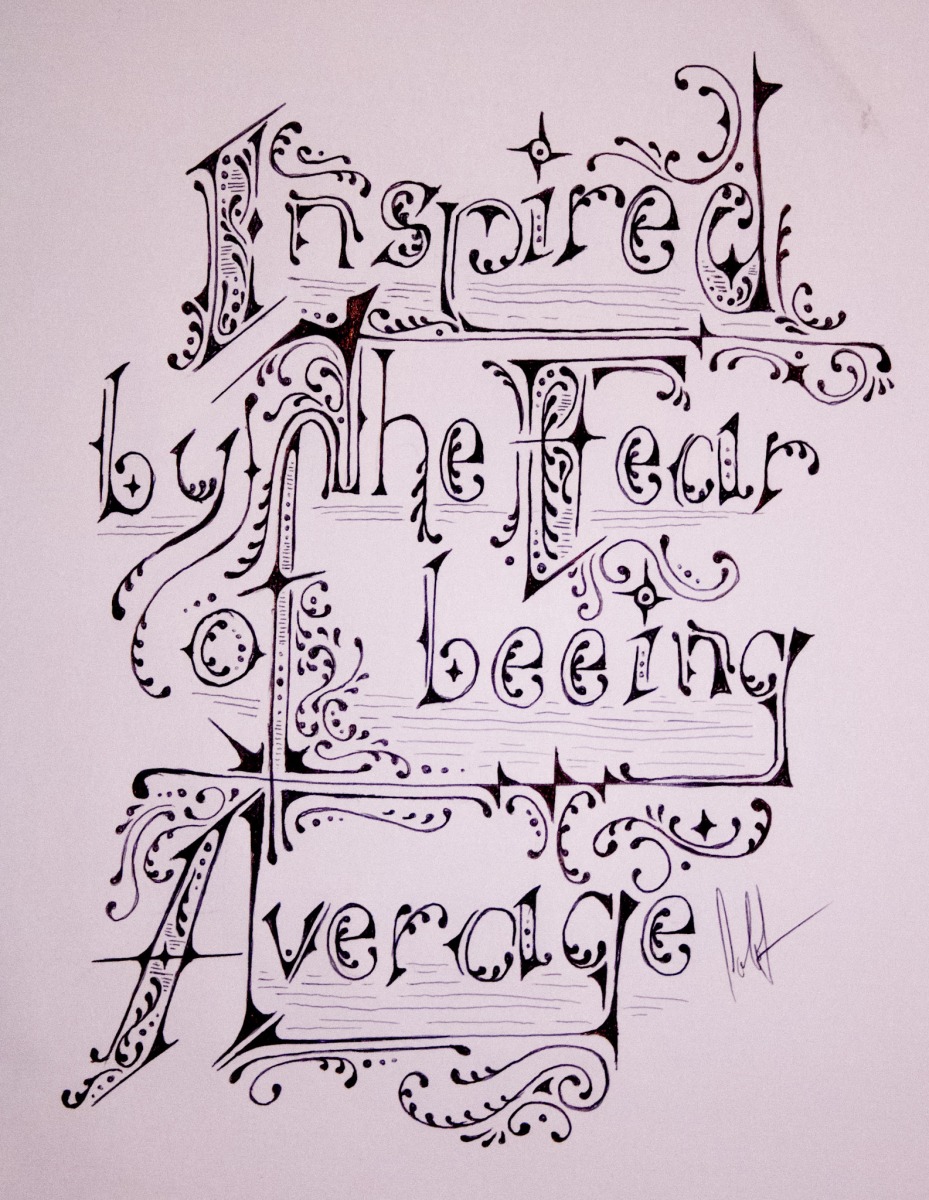 Inspired
by The Fear
of beeing
Average